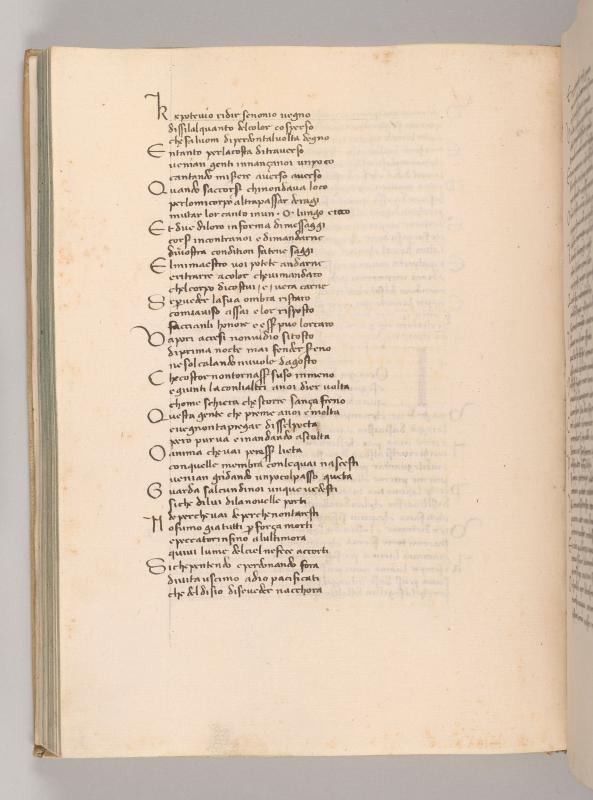 K e potevio ridir senonio vegno
dissilalquanto delcolor cosperso
che fa luom diperdontalvolta degno
E ntanto perlacosta ditraverso
venian genti innançanoi unpoco
cantando misere averso averso
Q uando saccorsr chinondava loco
perlomicorpo altrapassar deragi
mutar lor canto inun . O . lungo e roco
E t due diloro informa dimessaggi
corsr incontranoi e dimandarne
divostra condition fatene saggi
E lmimaestro voi potete andarne
eritrarre acolor chevimandaro
chelcorpo dicostui / e / vera carne
S e perveder lasua ombra ristaro
comiaviso assai elor risposto
facciarli honore e esser puo lorcaro
V apori accesi nonvidio sitosto
diprima nocte mai fender sereno
ne sol calando nuvole dagosto
C he costor nontornasser suso inmeno
e giunti la conlialtri anoi dier volta
chome schiera che scorre sança freno
Q uesta gente che preme anoi e molta
evegnontapregar disselpoeta
pero pur va e inandando ascolta
O anima che vai peresser lieta
conquelle membra conlequai nascesti
venian gridando unpocolpasso queta
G uarda salcundinoi unque vedesti
siche dilui dilanovelle porti
de perche vai de perche nontaresti
N oi fumo gia tutti per força morti
e peccatorinfino alultimora
quivi lume delciel nefece accorti
S iche pentendo e perdonando fora
divita uscimo adio pacificati
che deldisio diseveder nacchora